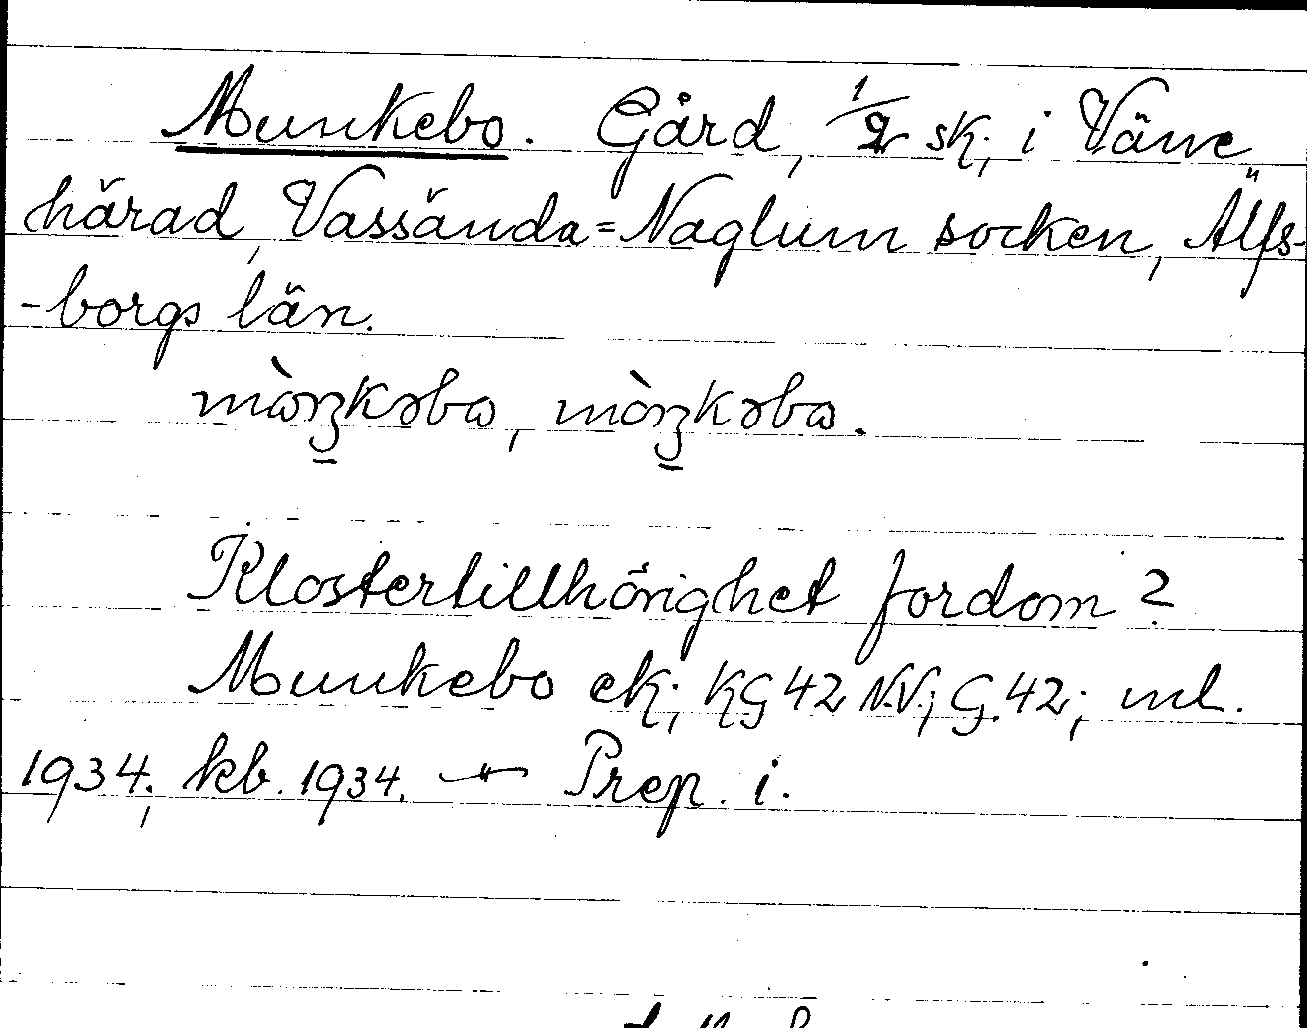 Munkebo. Gård, 1/2 sk; i Väne
härad, Vassända=Naglum socken, Älfs-
-borgs län.
Klostertillhörighet fordom?
Munkebo ek; KG 42 N.V; G. 42; ml.
1934; kb. 1934. — " — Prep. i.